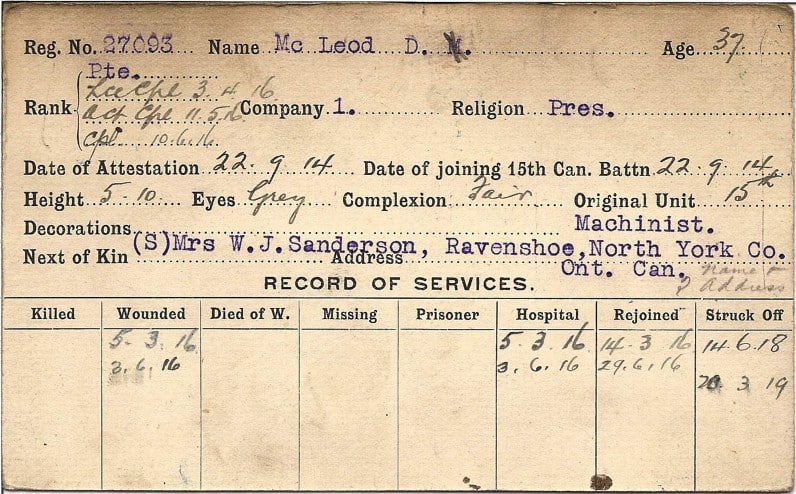 Reg. No. 27093 Name Mc Leod D. Age 37
Pte.
Lce Cpl 3.4.16
Rank Act Cpl 11.5.16 Company 1. Religion Pres.
Cpl 10.6.16
Date of Attestation 22.9.14 Date of joining 15th Can. Battn 22.9.14
Height 5-10 Eyes Grey Complexion Fair Original Unit 15th
Decorations Machinist.
Next of Kin (S)Mrs W.J.Sanderson, Address Ravenshoe, North York Co.
Ont. Can. Name &
? Address
RECORD OF SERVICES.
Killed Wounded Died of W. Missing Prisoner Hospital Rejoined Struck Off
5.3.16 5.3.16 14.3.16 14.6.18
3.6.16 3.6.16 29.6.16
3 19